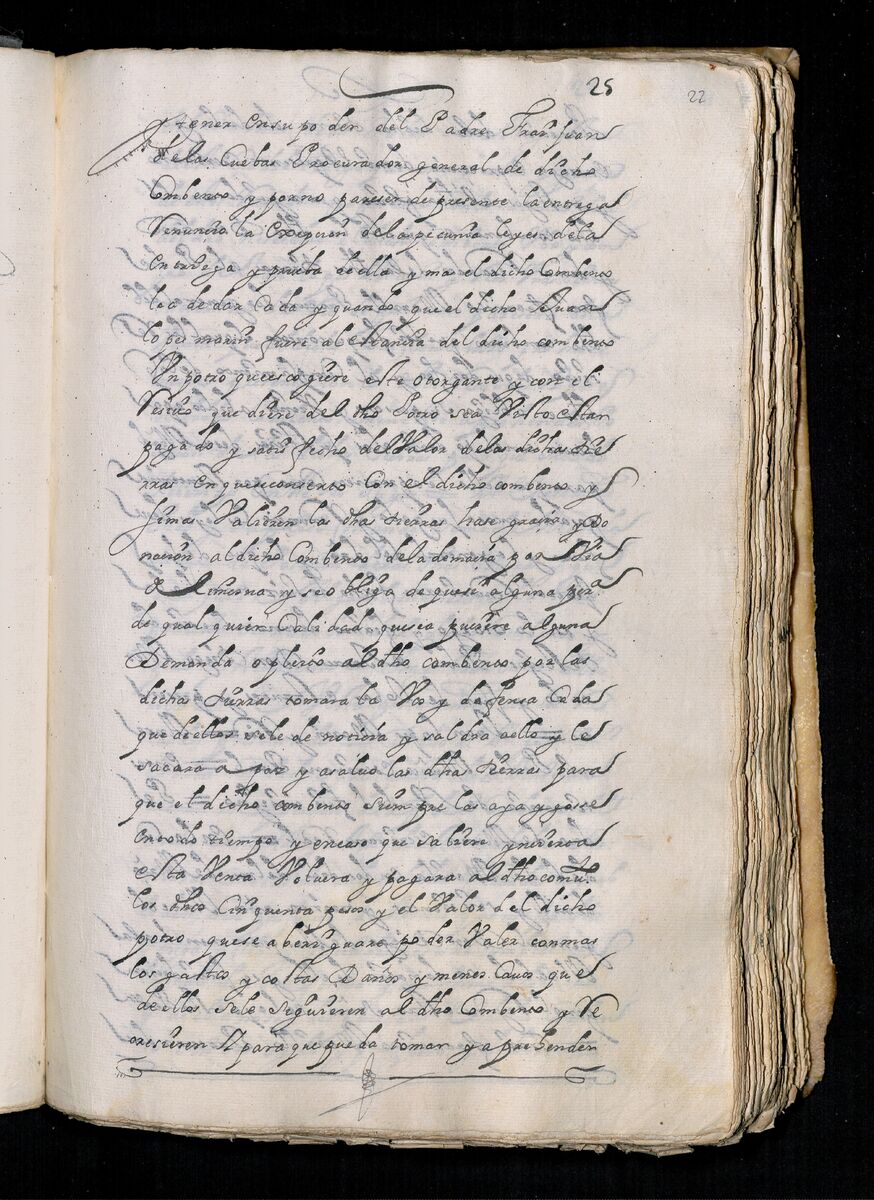 25
22
y tener en su poder del Padre Fray Juan
de las Cuebas Procurador general de dicho
Combento y por no pareser de presente la entrega
Renuncio la Exepcion de la pecunia leyes de la
entrega y prueba de ella y mas el dicho Combento
le a de dar Cada y quando que el dicho Juan
lopes marin fuere a la estancia del dicho combento
Un potro que escogiere este otorgante y con el
Resiuo que diere del dho Potro sea Visto estar
pagado y satisfecho del Valor de las dichas tie
rras en que se conserto Con el dicho combento y
si mas Valieren las dhas tierras hase grasia y Do
nasion al dicho Combento de la demasia por Via
de Limosna y se obliga de que si alguna per.
de qual quier Calidad que sea pusiere alguna
Demanda o pleito al dho combento por las
dichas tierras tomara la Vos y defensa Cada
que de ellos se le de noticia y saldra a ello y le
sacara a pas y a saluo las dhas tierras para
que el dicho combento siempre las aya y gosse
en todo tiempo y en caso que saliere ynsierta
esta Venta Voluera y pagara al dho comto.
los dhos Cinquenta pesos y el Valor del dicho
potro que se aberiguare poder Valer con mas
los gastos y costas Daños y menos Cauos que
de ellos se le siguieren al dho Combento y Re
cresieren y para que pueda tomar y aprehender